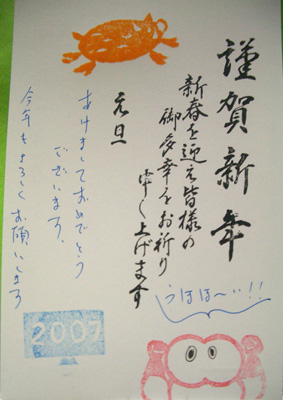 謹賀新年
新春を迎え皆様の
御多幸をお祈り
申し上げます
元旦
あけましておめでとう
ございます。
今年もよろしくお願いします
うほほ〜い!!
2007